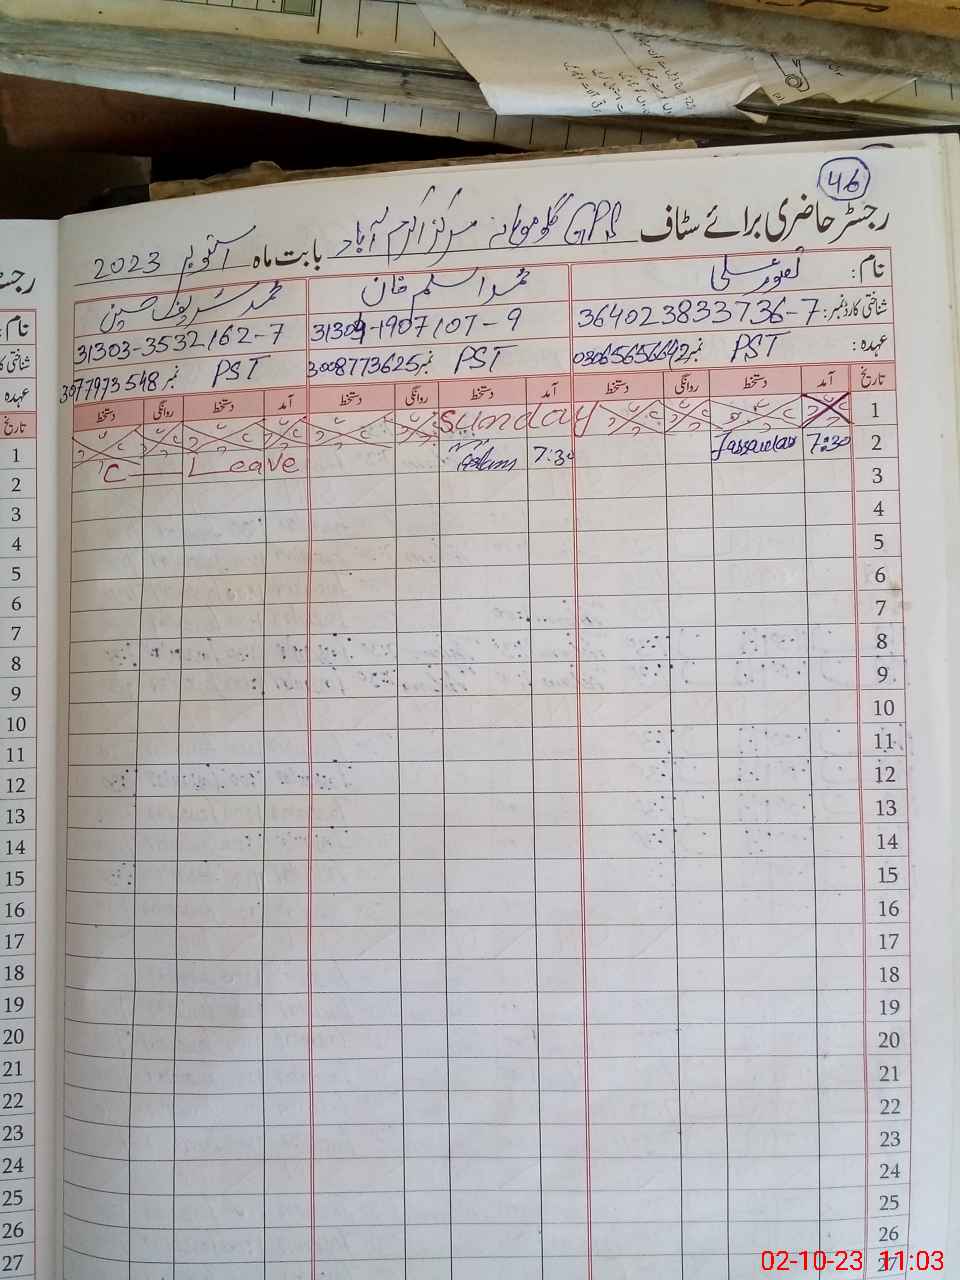 46
رجسٹر حاضری برائے سٹاف GPS گلو موہانہ مرکز اکرم آباد بابت ماہ اکتوبر 2023
نام: تصور علی محمد اسلم خان محمد شریف حسین
شناختی کارڈ نمبر: 364023833736-7 31304-1907107-9 31303-3532162-7
عہدہ: PST نمبر 03065656642 PST نمبر 3008773625 PST نمبر 3077973548
تاریخ آمد دستخط روانگی دستخط آمد دستخط روانگی دستخط آمد دستخط روانگی دستخط
1 Sunday
2 7:30 7:30 C Leave
3
4
5
6
7
8
9
10
11
12
13
14
15
16
17
18
19
20
21
22
23
24
25
26
27
نام:
عہدہ
تاریخ
1
2
3
4
5
6
7
8
9
10
11
12
13
14
15
16
17
18
19
20
21
22
23
24
25
26
27
02-10-23 11:03